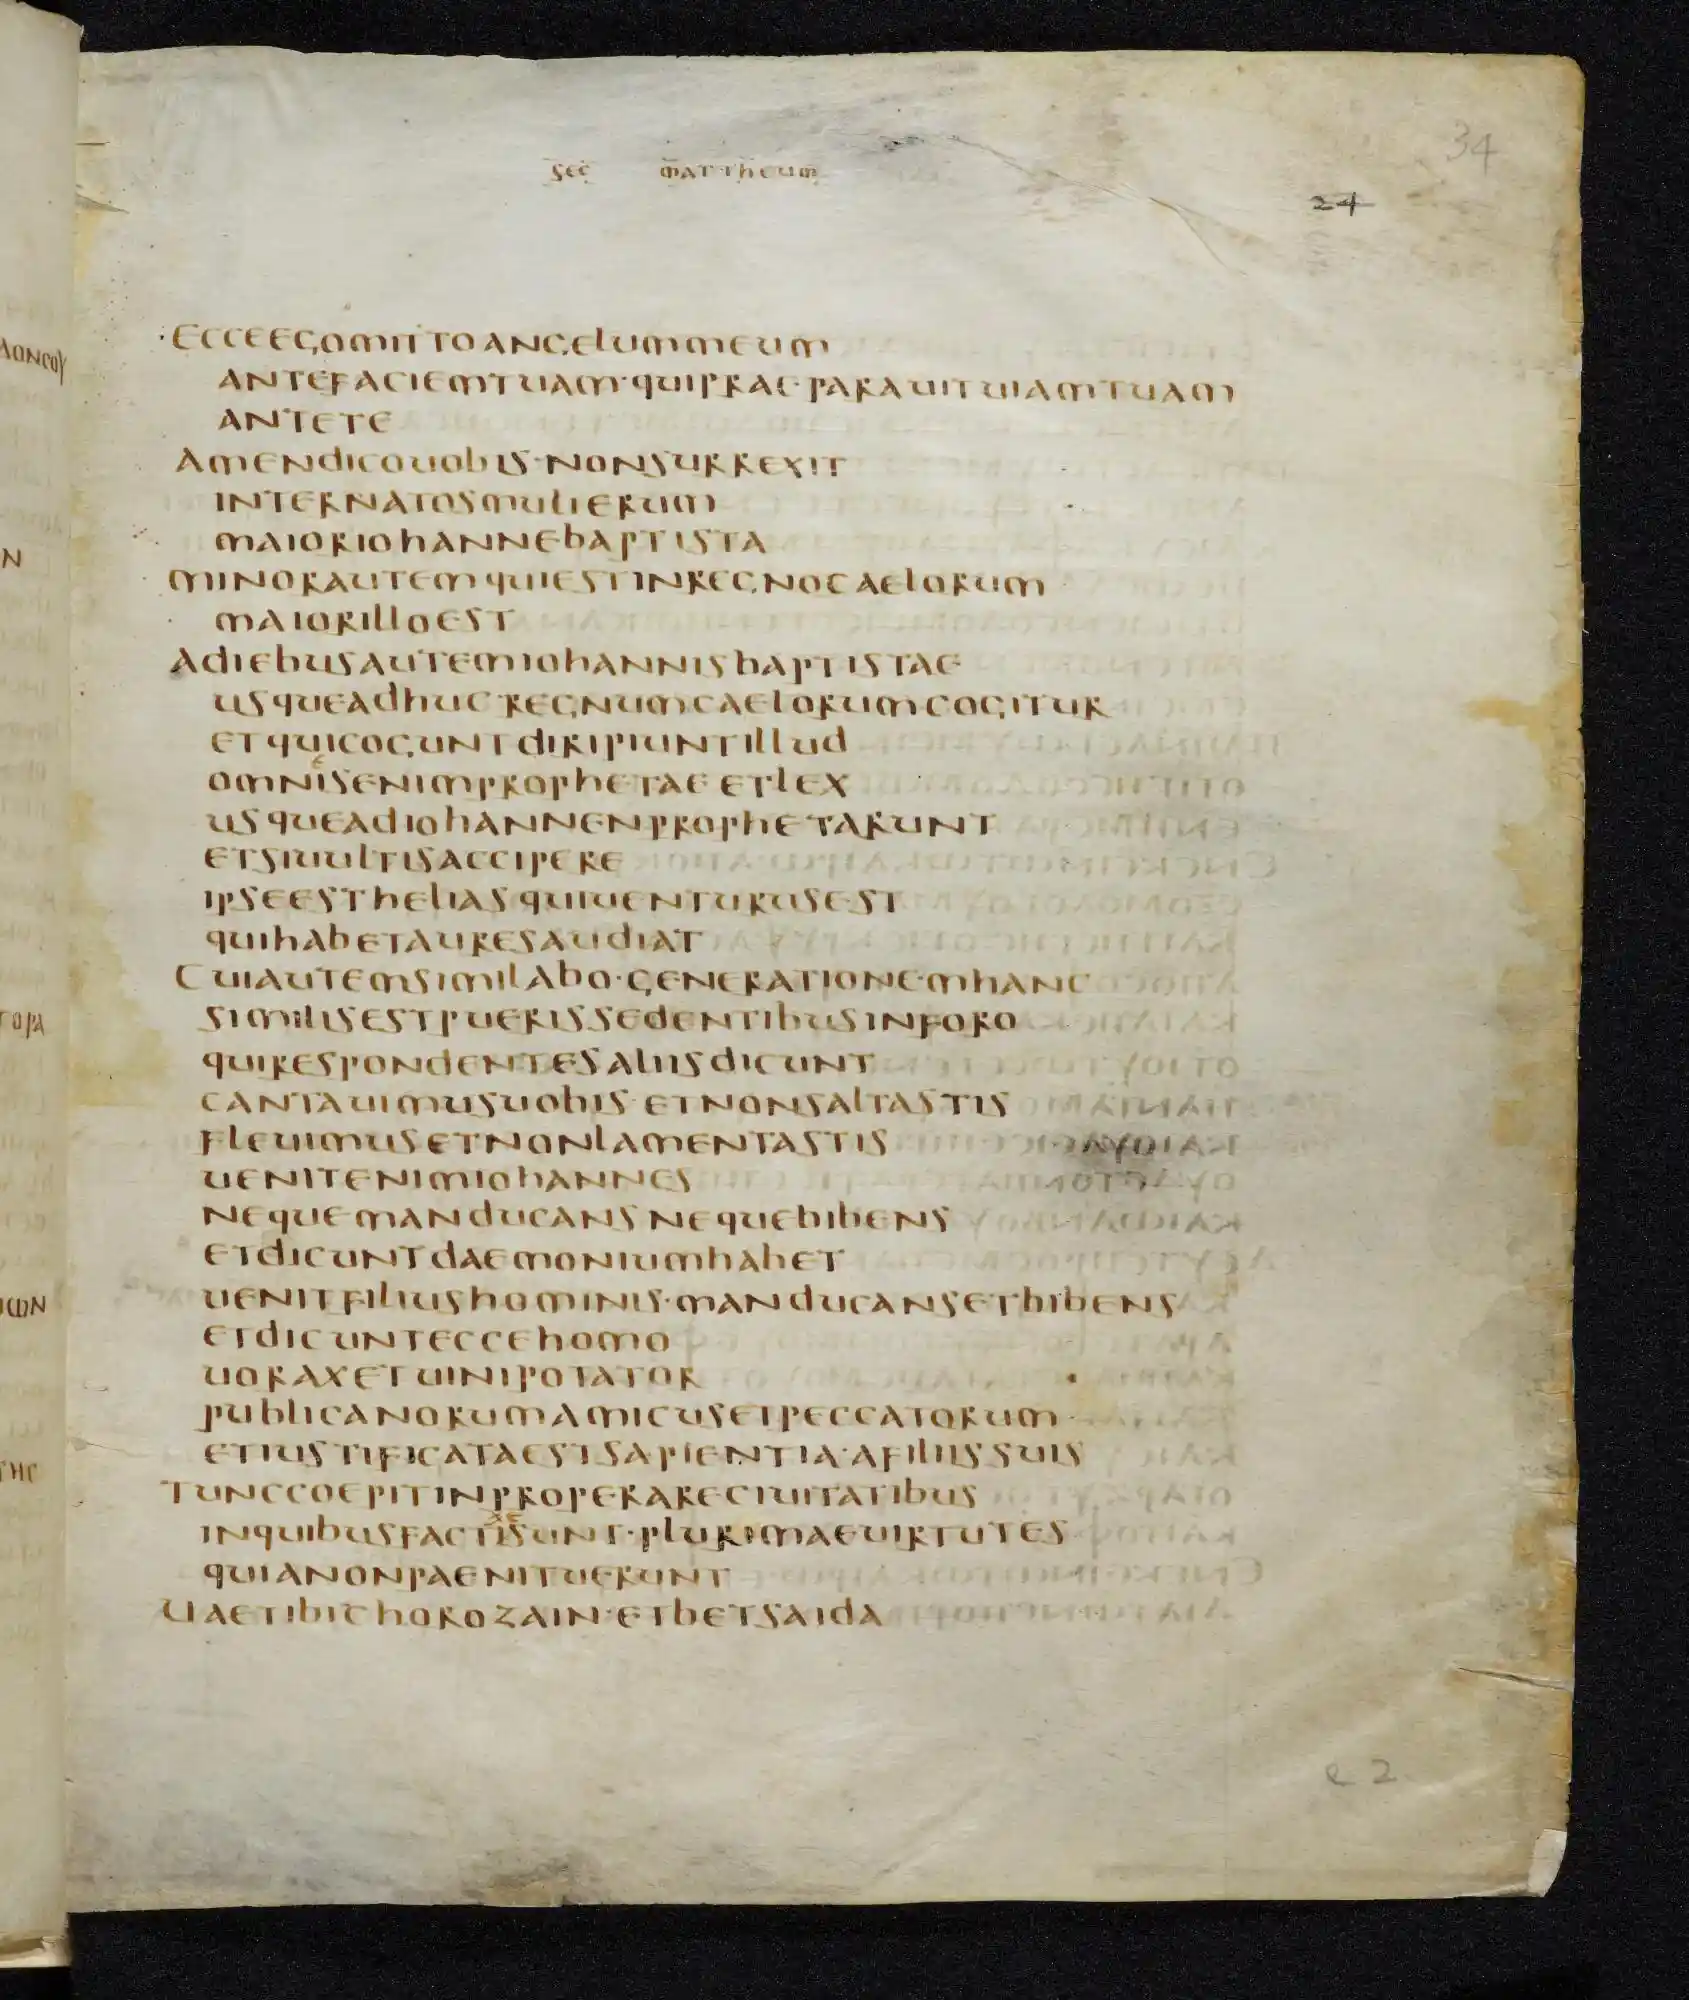 34
sec mattheum
24
ECCEEGOMITTOANGELUMMEUM
ANTEFACIEMTUAM·QUIPRAE·PARAUITUIAMTUAM
ANTETE
AMENDICOUOBIS·NONSURREXIT
INTERNATOSMULIERUM
MAIORIOHANNEBAPTISTA
MINORAUTEMQUIESTINREGNOCAELORUM
MAIORILLOEST
ADIEBUSAUTEMIOHANNISBAPTISTAE
USQUEADHUCREGNUMCAELORUMCOGITUR
ETQUICOGUNTDIRIPIUNTILLUD
OMNISENIMPROPHETAEETLEX
USQUEADIOHANNENPROPHETARUNT
ETSIUULTISACCIPERE
IPSEESTHELIASQUIUENTURUSEST
QUIHABETAURESAUDIAT
CUIAUTEMSIMILABO·GENERATIONEMHANC
SIMILISESTPUERISSEDENTIBUSINFORO
QUIRESPONDENTESALIISDICUNT
CANTAUIMUSUOBIS·ETNONSALTASTIS
FLEUIMUSETNONLAMENTASTIS
UENITENIMIOHANNES
NEQUEMANDUCANSNEQUEBIBENS
ETDICUNTDAEMONIUMHABET
UENITFILIUSHOMINIS·MANDUCANSETBIBENS
ETDICUNTECCEHOMO
UORAXETUINIPOTATOR
PUBLICANORUMAMICUSETPECCATORUM
ETIUSTIFICATAESTSAPIENTIA·AFILIISSUIS
TUNCCOEPITINPROPERARECIUITATIBUS
INQUIBUSFACTISUNT·PLURIMAEUIRTUTES
QUIANONPAENITUERUNT
UAETIBICHOROZAIN·ETBETSAIDA
e 2